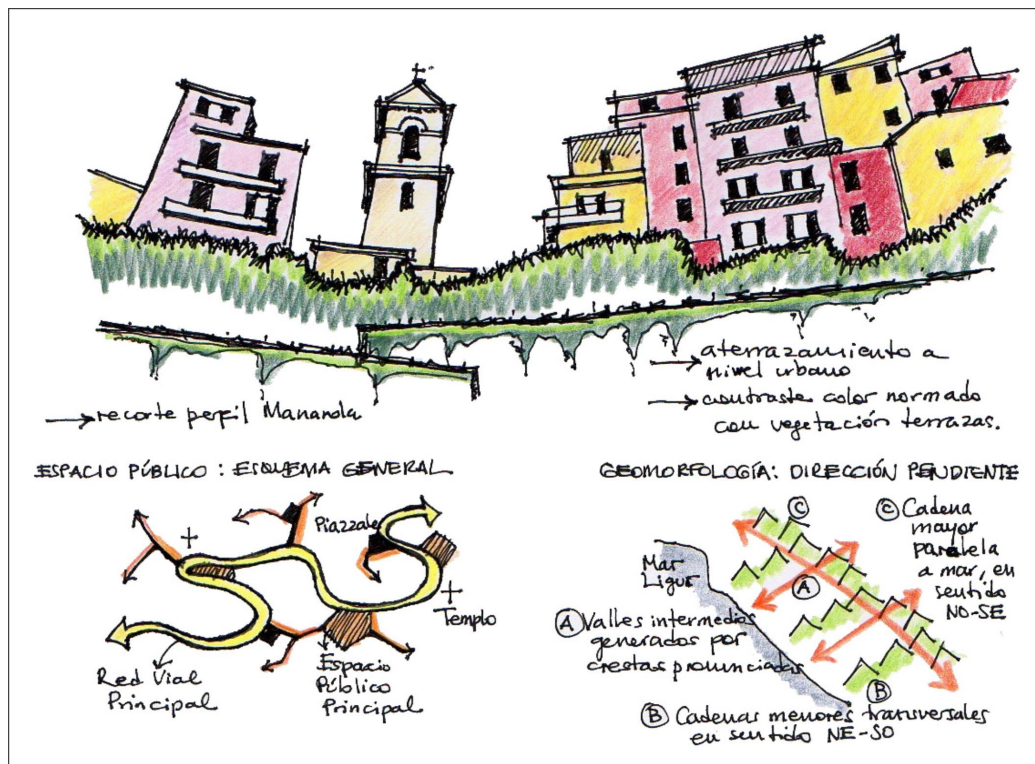 → aterrazamiento a
nivel urbano
→ contraste color normado
con vegetación terrazas.
→ recorte perfil Manarola
ESPACIO PÚBLICO : ESQUEMA GENERAL
Piazzale
Templo
Red Vial
Principal
Espacio
Público
Principal
GEOMORFOLOGÍA: DIRECCIÓN PENDIENTE
C
C Cadena
mayor
paralela
a mar, en
sentido
NO-SE
Mar
Ligur
A
A Valles intermedios
generados por
crestas pronunciadas
B
B Cadenas menores transversales
en sentido NE-SO